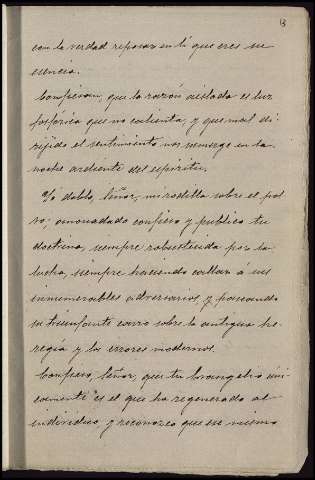 3
con la verdad reposar en tí que eres su
esencia.
Confiesan, que la razón aislada es luz
fosforica que no calienta, y que mal di-
rijido el sentimiento nos sumerge en la
noche ardiente del espiritu.
Yo doblo, Señor, mi rodilla sobre el pol-
vo; anonadado confieso y publico tu
doctrina, siempre robustecida por la
lucha, siempre haciendo callar á sus
innumerables adversarios, y paseando
su triunfante carro sobre la antigua he-
regía y los errores modernos.
Confieso, Señor, que tu Evangelio úni-
camente es el que ha regenerado al
individuo, y reconozco que ese mismo